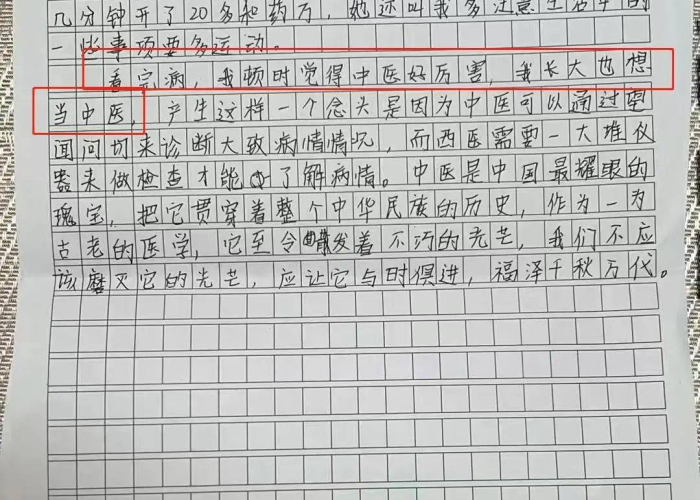 几分钟开了20多种药方，她还叫我多注意生活中的
一些事项要多运动。
看完病，我顿时觉得中医好厉害，我长大也想
当中医，产生这样一个念头是因为中医可以通过望
闻问切来诊断大致病情情况，而西医需要一大堆仪
器来做检查才能了解病情。中医是中国最耀眼的
瑰宝，把它贯穿着整个中华民族的历史，作为一为
古老的医学，它至今散发着不朽的光芒，我们不应
该磨灭它的光芒，应让它与时俱进，福泽千秋万代。